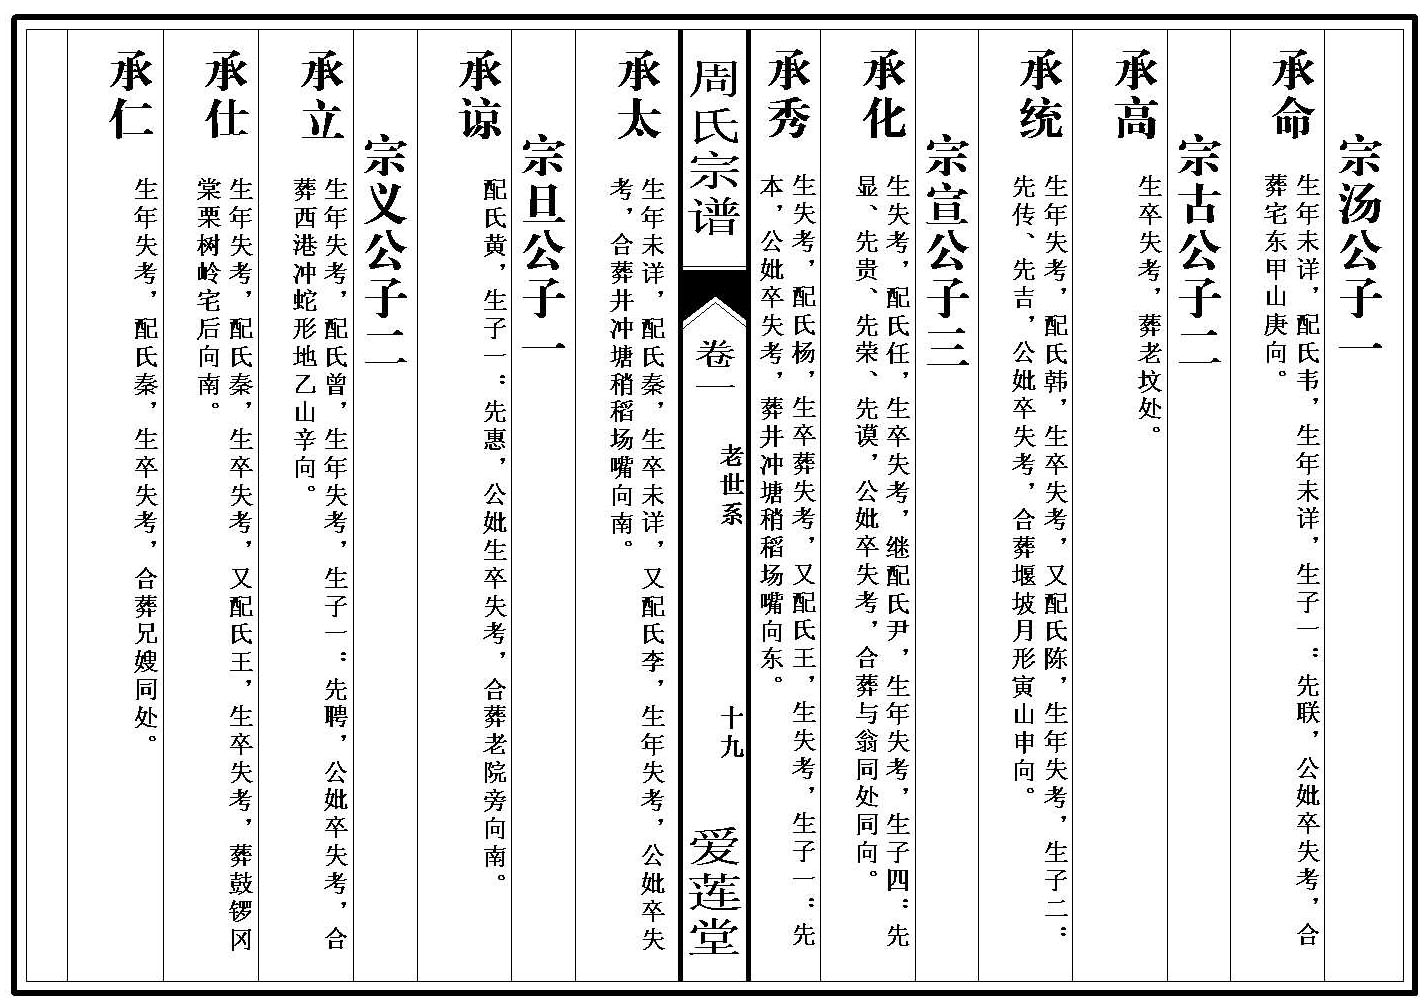 宗汤公子一
承命
生年未详，配氏韦，生年未详，生子一：先联，公妣卒失考，合
葬宅东甲山庚向。
宗古公子二
承高
生卒失考，葬老坟处。
承统
生年失考，配氏韩，生卒失考，又配氏陈，生年失考，生子二：
先传、先吉，公妣卒失考，合葬堰坡月形寅山申向。
宗宣公子三
承化
生失考，配氏任，生卒失考，继配氏尹，生年失考，生子四：先
显、先贵、先荣、先谟，公妣卒失考，合葬与翁同处同向。
承秀
生失考，配氏杨，生卒葬失考，又配氏王，生失考，生子一：先
本，公妣卒失考，葬井冲塘稍稻场嘴向东。
周氏宗谱
卷一
老世系
十九
爱莲堂
承太
生年未详，配氏秦，生卒未详，又配氏李，生年失考，公妣卒失
考，合葬井冲塘稍稻场嘴向南。
宗旦公子一
承谅
配氏黄，生子一：先惠，公妣生卒失考，合葬老院旁向南。
宗义公子二
承立
生年失考，配氏曾，生年失考，生子一：先聘，公妣卒失考，合
葬西港冲蛇形地乙山辛向。
承仕
生年失考，配氏秦，生卒失考，又配氏王，生卒失考，葬鼓锣冈
棠栗树岭宅后向南。
承仁
生年失考，配氏秦，生卒失考，合葬兄嫂同处。